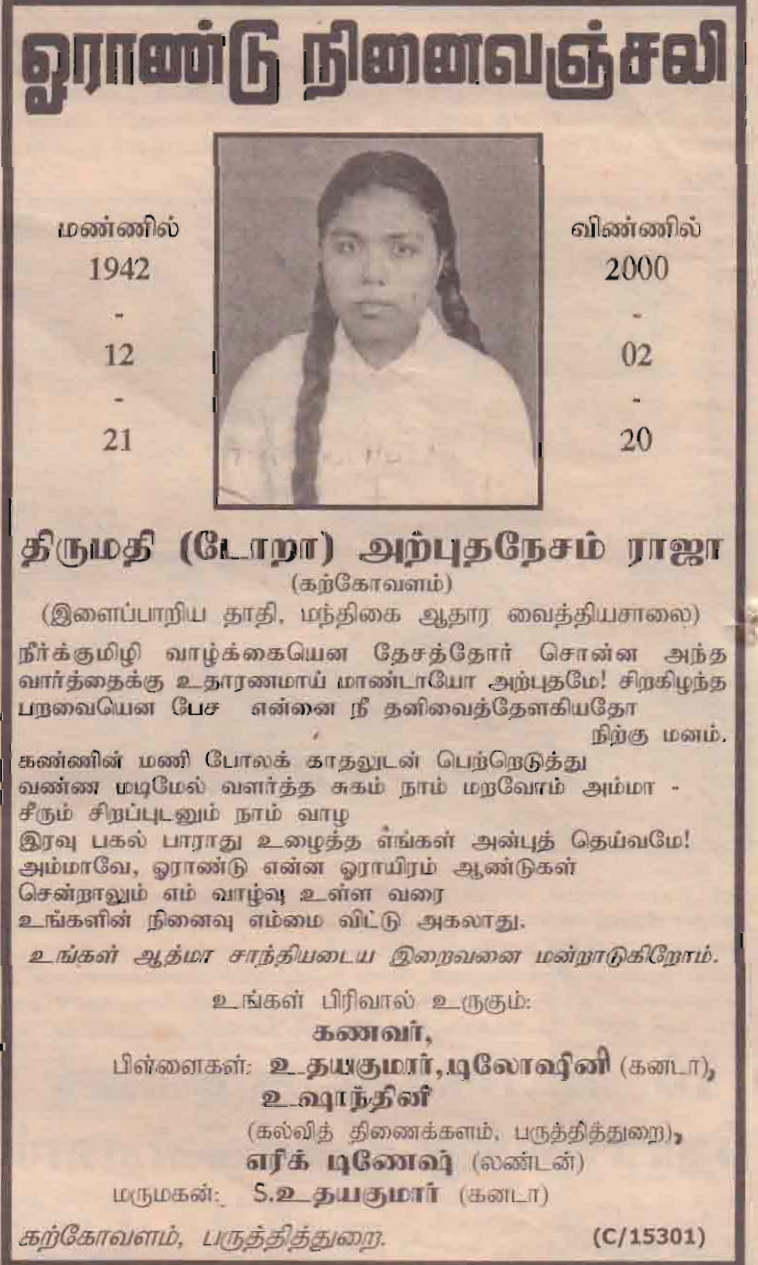 ஓராண்டு நினைவஞ்சலி
மண்ணில்
1942
-
12
-
21
விண்ணில்
2000
-
02
-
20
திருமதி (டோறா) அற்புதநேசம் ராஜா
(கற்கோவளம்)
(இளைப்பாறிய தாதி, மந்திகை ஆதார வைத்தியசாலை)
நீர்க்குமிழி வாழ்க்கையென தேசத்தோர் சொன்ன அந்த
வார்த்தைக்கு உதாரணமாய் மாண்டாயோ அற்புதமே! சிறகிழந்த
பறவையென பேச என்னை நீ தனிவைத்தேளகியதோ
நிற்கு மனம்.
கண்ணின் மணி போலக் காதலுடன் பெற்றெடுத்து
வண்ண மடிமேல் வளர்த்த சுகம் நாம் மறவோம் அம்மா -
சீரும் சிறப்புடனும் நாம் வாழ
இரவு பகல் பாராது உழைத்த எங்கள் அன்புத் தெய்வமே!
அம்மாவே, ஓராண்டு என்ன ஓராயிரம் ஆண்டுகள்
சென்றாலும் எம் வாழ்வு உள்ள வரை
உங்களின் நினைவு எம்மை விட்டு அகலாது.
உங்கள் ஆத்மா சாந்தியடைய இறைவனை மன்றாடுகிறோம்.
உங்கள் பிரிவால் உருகும்:
கணவர்,
பிள்ளைகள்: உதயகுமார், டிலோஷினி (கனடா),
உஷாந்தினி
(கல்வித் திணைக்களம், பருத்தித்துறை),
எரிக் டிணேஷ் (லண்டன்)
மருமகன்: S.உதயகுமார் (கனடா)
கற்கோவளம், பருத்தித்துறை. (C/15301)